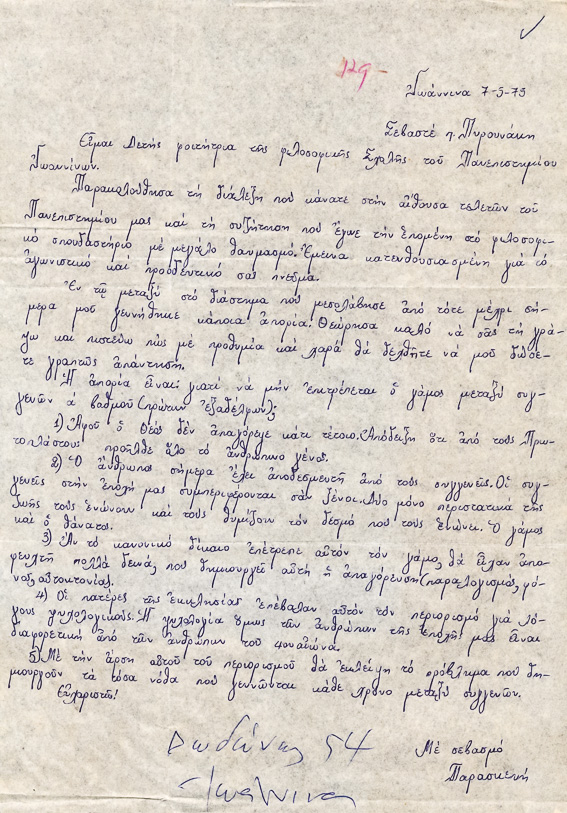 129-
Ἰωάννινα 7-5-75
Σεβαστέ κ. Πυρουνάκη
Εἶμαι 2ετής φοιτήτρια τῆς φιλοσοφικῆς Σχολῆς τοῦ Πανεπιστημίου
Ἰωαννίνων.
Παρακολούθησα τή διάλεξη πού κάνατε στήν αἴθουσα τελετῶν τοῦ
Πανεπιστημίου μας καί τή συζήτηση πού ἔγινε τήν ἑπομένη στό φιλοσοφι-
κό σπουδαστήριο μέ μεγάλο θαυμασμό. Ἔμεινα κατενθουσιασμένη γιά τό
ἀγωνιστικό καί προοδευτικό σας πνεῦμα.
Ἐν τῷ μεταξύ στό διάστημα πού μεσολάβησε ἀπό τότε μέχρι σή-
μερα μοῦ γεννήθηκε κάποια ἀπορία. Θεώρησα καλό νά σᾶς τή γρά-
ψω καί πιστεύω πώς μέ προθυμία καί χαρά θά δεχθῆτε νά μοῦ δώσε-
τε γραπτῶς ἀπάντηση.
Ἡ ἀπορία εἶναι: γιατί νά μήν ἐπιτρέπεται ὁ γάμος μεταξύ συγ-
γενῶν ά βαθμοῦ (πρώτων ἐξαδέλφων);
1) Ἀφοῦ ὁ Θεός δέν ἀπαγόρεψε κάτι τέτοιο. (Ἀπόδειξη ὅτι ἀπό τούς Πρω-
τοπλάστους προῆλθε ὅλο τό ἀνθρώπινο γένος.
2) Ὁ ἄνθρωπος σήμερα ἔχει ἀποδεσμευτῆ ἀπό τούς συγγενεῖς. Οἱ συγ-
γενεῖς στήν ἐποχή μας συμπεριφέρονται σάν ξένοι. Δύο μόνο περιστατικά τῆς
ζωῆς τούς ἑνώνουν καί τούς θυμίζουν τόν δεσμό πού τούς ἑνώνει. Ὁ γάμος
καί ὁ θάνατος.
3) Ἄν τό κανονικό δίκαιο ἐπέτρεπε αὐτόν τόν γάμο, θά εἶχαν ἀπο-
φευχτῆ πολλά δεινά, πού δημιουργεῖ αὐτή ἡ ἀπαγόρευση (παραλογισμός, φό-
νος, αὐτοκτονία.
4) Οἱ πατέρες τῆς ἐκκλησίας ἐπέβαλαν αὐτόν τόν περιορισμό γιά λό-
γους ψυχολογικούς. Ἡ ψυχολογία ὅμως τῶν ἀνθρώπων τῆς ἐποχῆς μας εἶναι
διαφορετική ἀπό τῶν ἀνθρώπων τοῦ 4ου αἰώνα.
5) Μέ τήν ἄρση αὐτοῦ τοῦ περιορισμοῦ θά ἐκλείψη τό πρόβλημα πού δη-
μιουργοῦν τά τόσα νόθα πού γεννῶνται κάθε χρόνο μεταξύ συγγενῶν.
Εὐχαριστῶ!
Μέ σεβασμό
Παρασκευή
Δωδώνης 54
Ἰωάννινα